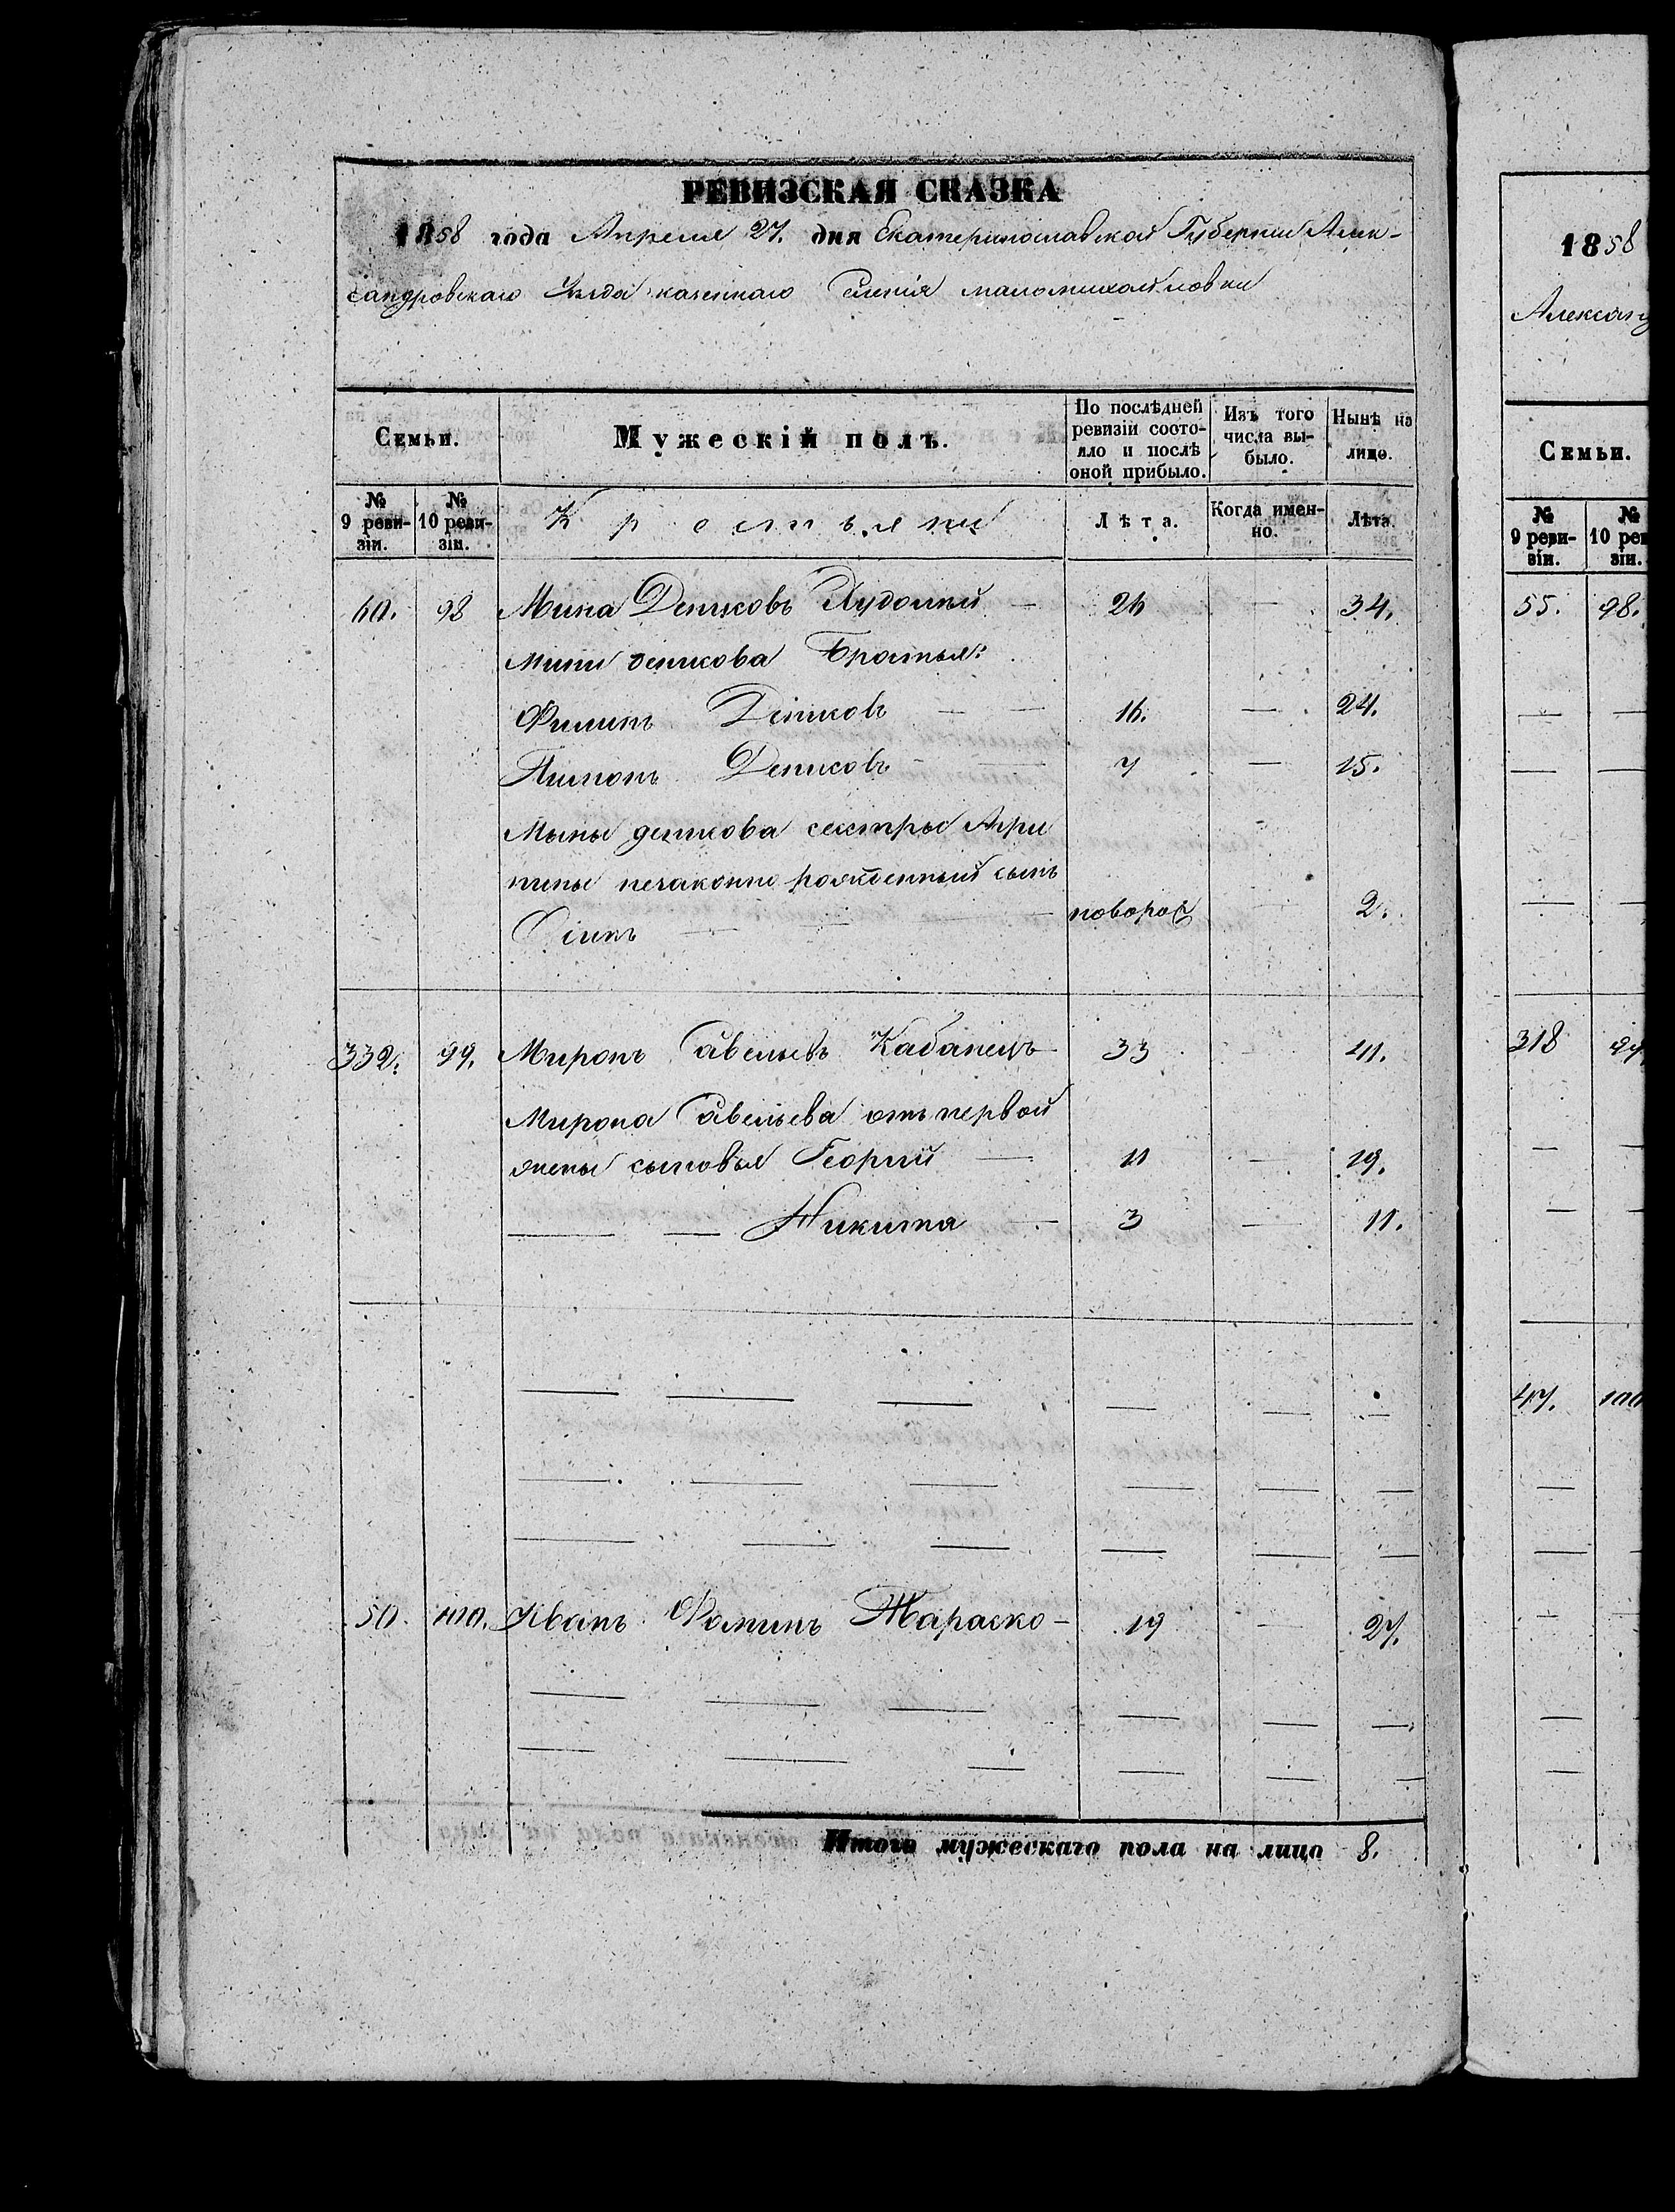 РЕВИЗСКАЯ СКАЗКА
1858 года Апреля 27. дня Екатеринославской Губернии Алек-
сандровскаго Уезда казеннаго Селенія маломихайловки
Семьи. Мужескій полъ. По послѣдней ревизіи состояло и послѣ оной прибыло. Изъ того числа выбыло. Нынѣ на лицо.
№ 9 ревизіи. № 10 ревизіи. Крестьяне Лѣта. Когда именно. Лѣта.
60. 98 Мина Денисовъ Худолий — 26 — 34.
Мини денисова Братья:
Филипъ Денисовъ — — 16. — 24.
Денисовъ — 7 — 15.
Мины денисова сестры Агри
пины незаконно рожденный сынъ
— — — новорож — 2.
332. 99. Миронъ Савельевъ Кабанецъ 33 41.
Мирона Савельева отъ первой
жены сыновья Георгий — 11 — 19.
— — Никита — 3 — 11.
50. 100. Иванъ Фоминъ Тараско — 19 — 27.
Итого мужескаго пола на лицо 8.
1858
Александ
Семьи.
№ 9 ревизіи. № 10 рев зіи.
55. 98.
318 99
47. 100